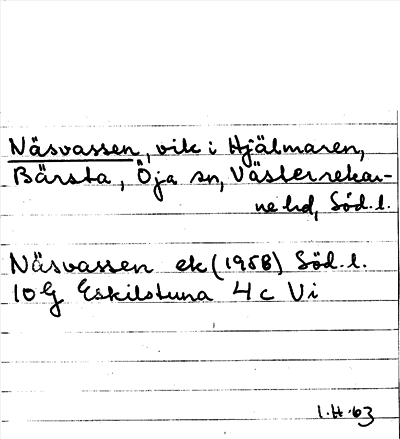 Näsvassen, vik i Hjälmaren,
Bärsta, Öja sn, Västerrekar-
ne hd, Söd. l.
Näsvassen ek (1958) Söd. l.
10 G Eskilstuna 4 c Vi
I. H. 63